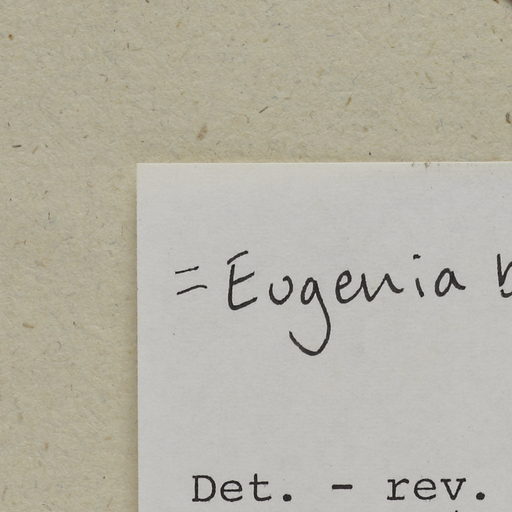 = Eugenia
Det. - rev.